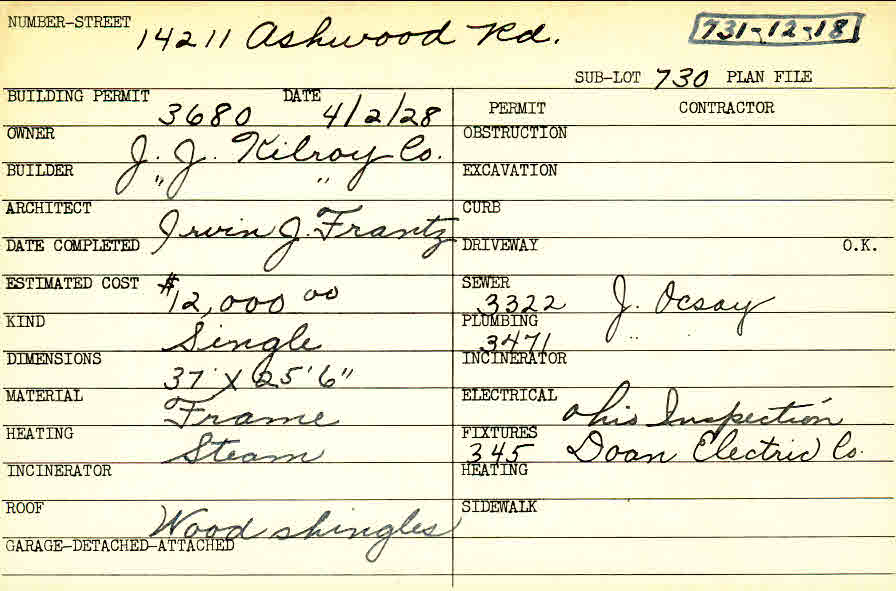 NUMBER-STREET 14211 Ashwood Rd. 731-12-18
SUB-LOT 730 PLAN FILE
BUILDING PERMIT 3680 DATE 4/2/28
OWNER J. J. Kilroy Co.
BUILDER " "
ARCHITECT Irvin J. Frantz
DATE COMPLETED
ESTIMATED COST $12,000 00
KIND Single
DIMENSIONS 37' X 25'6"
MATERIAL Frame
HEATING Steam
INCINERATOR
ROOF Wood shingles
GARAGE-DETACHED-ATTACHED
PERMIT CONTRACTOR
OBSTRUCTION
EXCAVATION
CURB
DRIVEWAY O.K.
SEWER 3322 J. Ocsay
PLUMBING 3471 "
INCINERATOR
ELECTRICAL Ohio Inspection
FIXTURES 345 Doan Electric Co.
HEATING
SIDEWALK